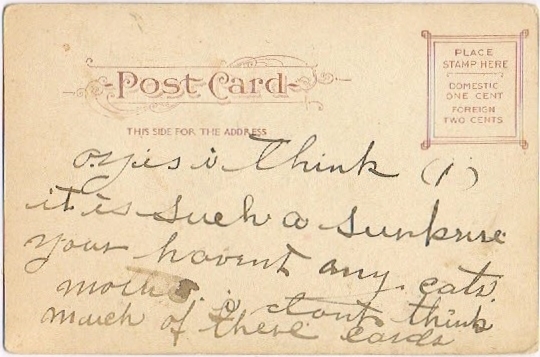 POST CARD
THIS SIDE FOR THE ADDRESS
PLACE
STAMP HERE
DOMESTIC
ONE CENT
FOREIGN
TWO CENTS
o.yes i think (1)
it is such a sunkrise
your havent any cats
i dont think
much of these cards